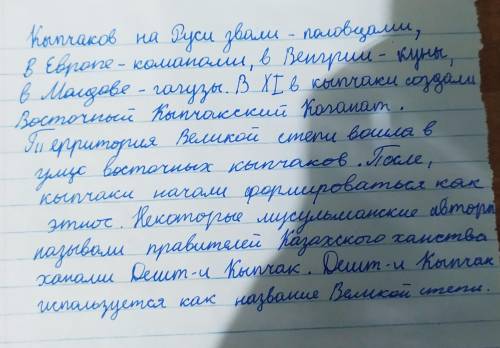 Кыпчаков на Руси звали - половцами,
в Европе - команами, в Венгрии - куны,
в Молдове - гагузы. В XI в кыпчаки создали
Восточный Кыпчакский Каганат.
Территория Великой степи вошла в
улус восточных кыпчаков. После,
кыпчаки начали формироваться как
этнос. Некоторые мусульманские авторы
называли правителей Казахского ханства
ханами Дешт-и Кыпчак. Дешт-и Кыпчак
используется как название Великой степи.